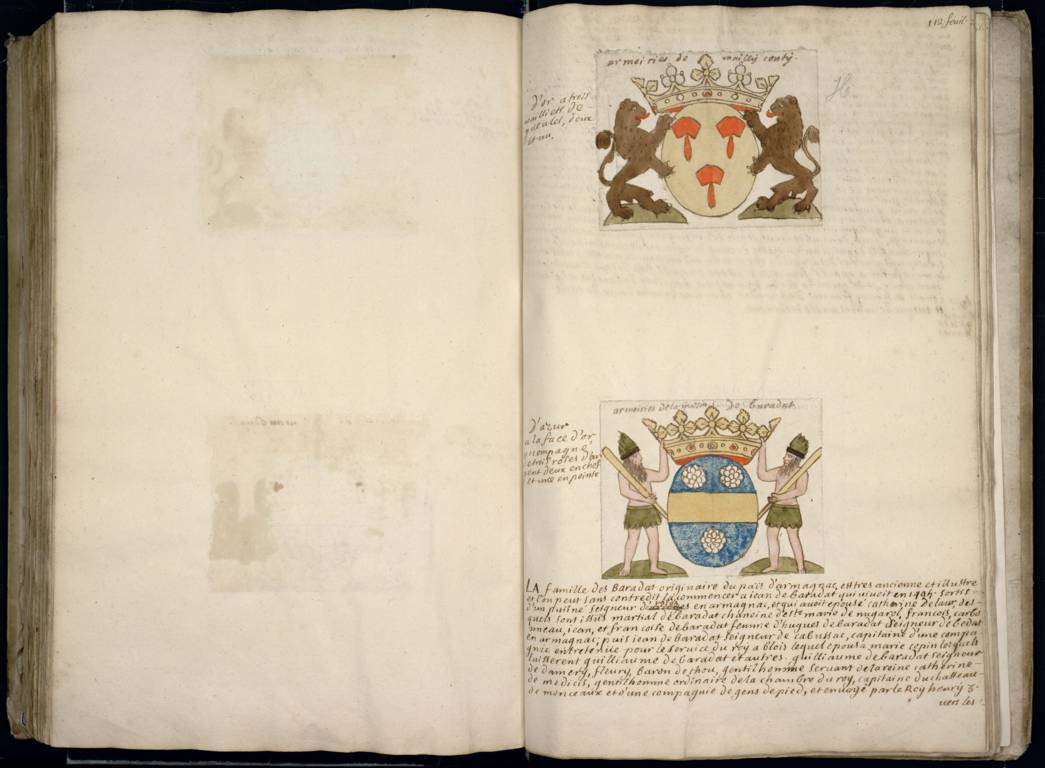 112. feuil.
armoiries de mailly conty.
D'or a trois
mailliets de
gueules, deux
et un.
armoiries de la maison de Baradat
D'azur
a la face d'or
accompagne
de trois roses d'ar
gent deux en chef
et une en pointe
LA famille des Baradat originaire du païs d'armagnac, est tres ancienne et illustre
et l'on peut sans contredit la commencer a iean de baradat qui vivoit en sortit
d'un puisné seigneur en armagnac, et qui avoit epousé catherine des
quels sont issus martial de baradat chanoine de ste marie de nugarol, francois, carbo
nneau, iean, et francoise de baradat femme d'hugues de baradat seigneur de
en armagnac; puis iean de Baradat seigneur de cabusac, capitaine d'une compa
gnie entretenue pour le service du roy a blois lequel epousa marie copin lesquels
laisserent guilliaume de baradat et autres. guilliaume de baradat seigneur
de damery, fleury, baron de thou, gentilhomme servant de la reine catherine
de medicis, gentilhomme ordinaire de la chambre du roy, capitaine du chasteau
de monceaux et d'une compagnie de gens de pied, et envoyé par le Roy henry 3.
vers les